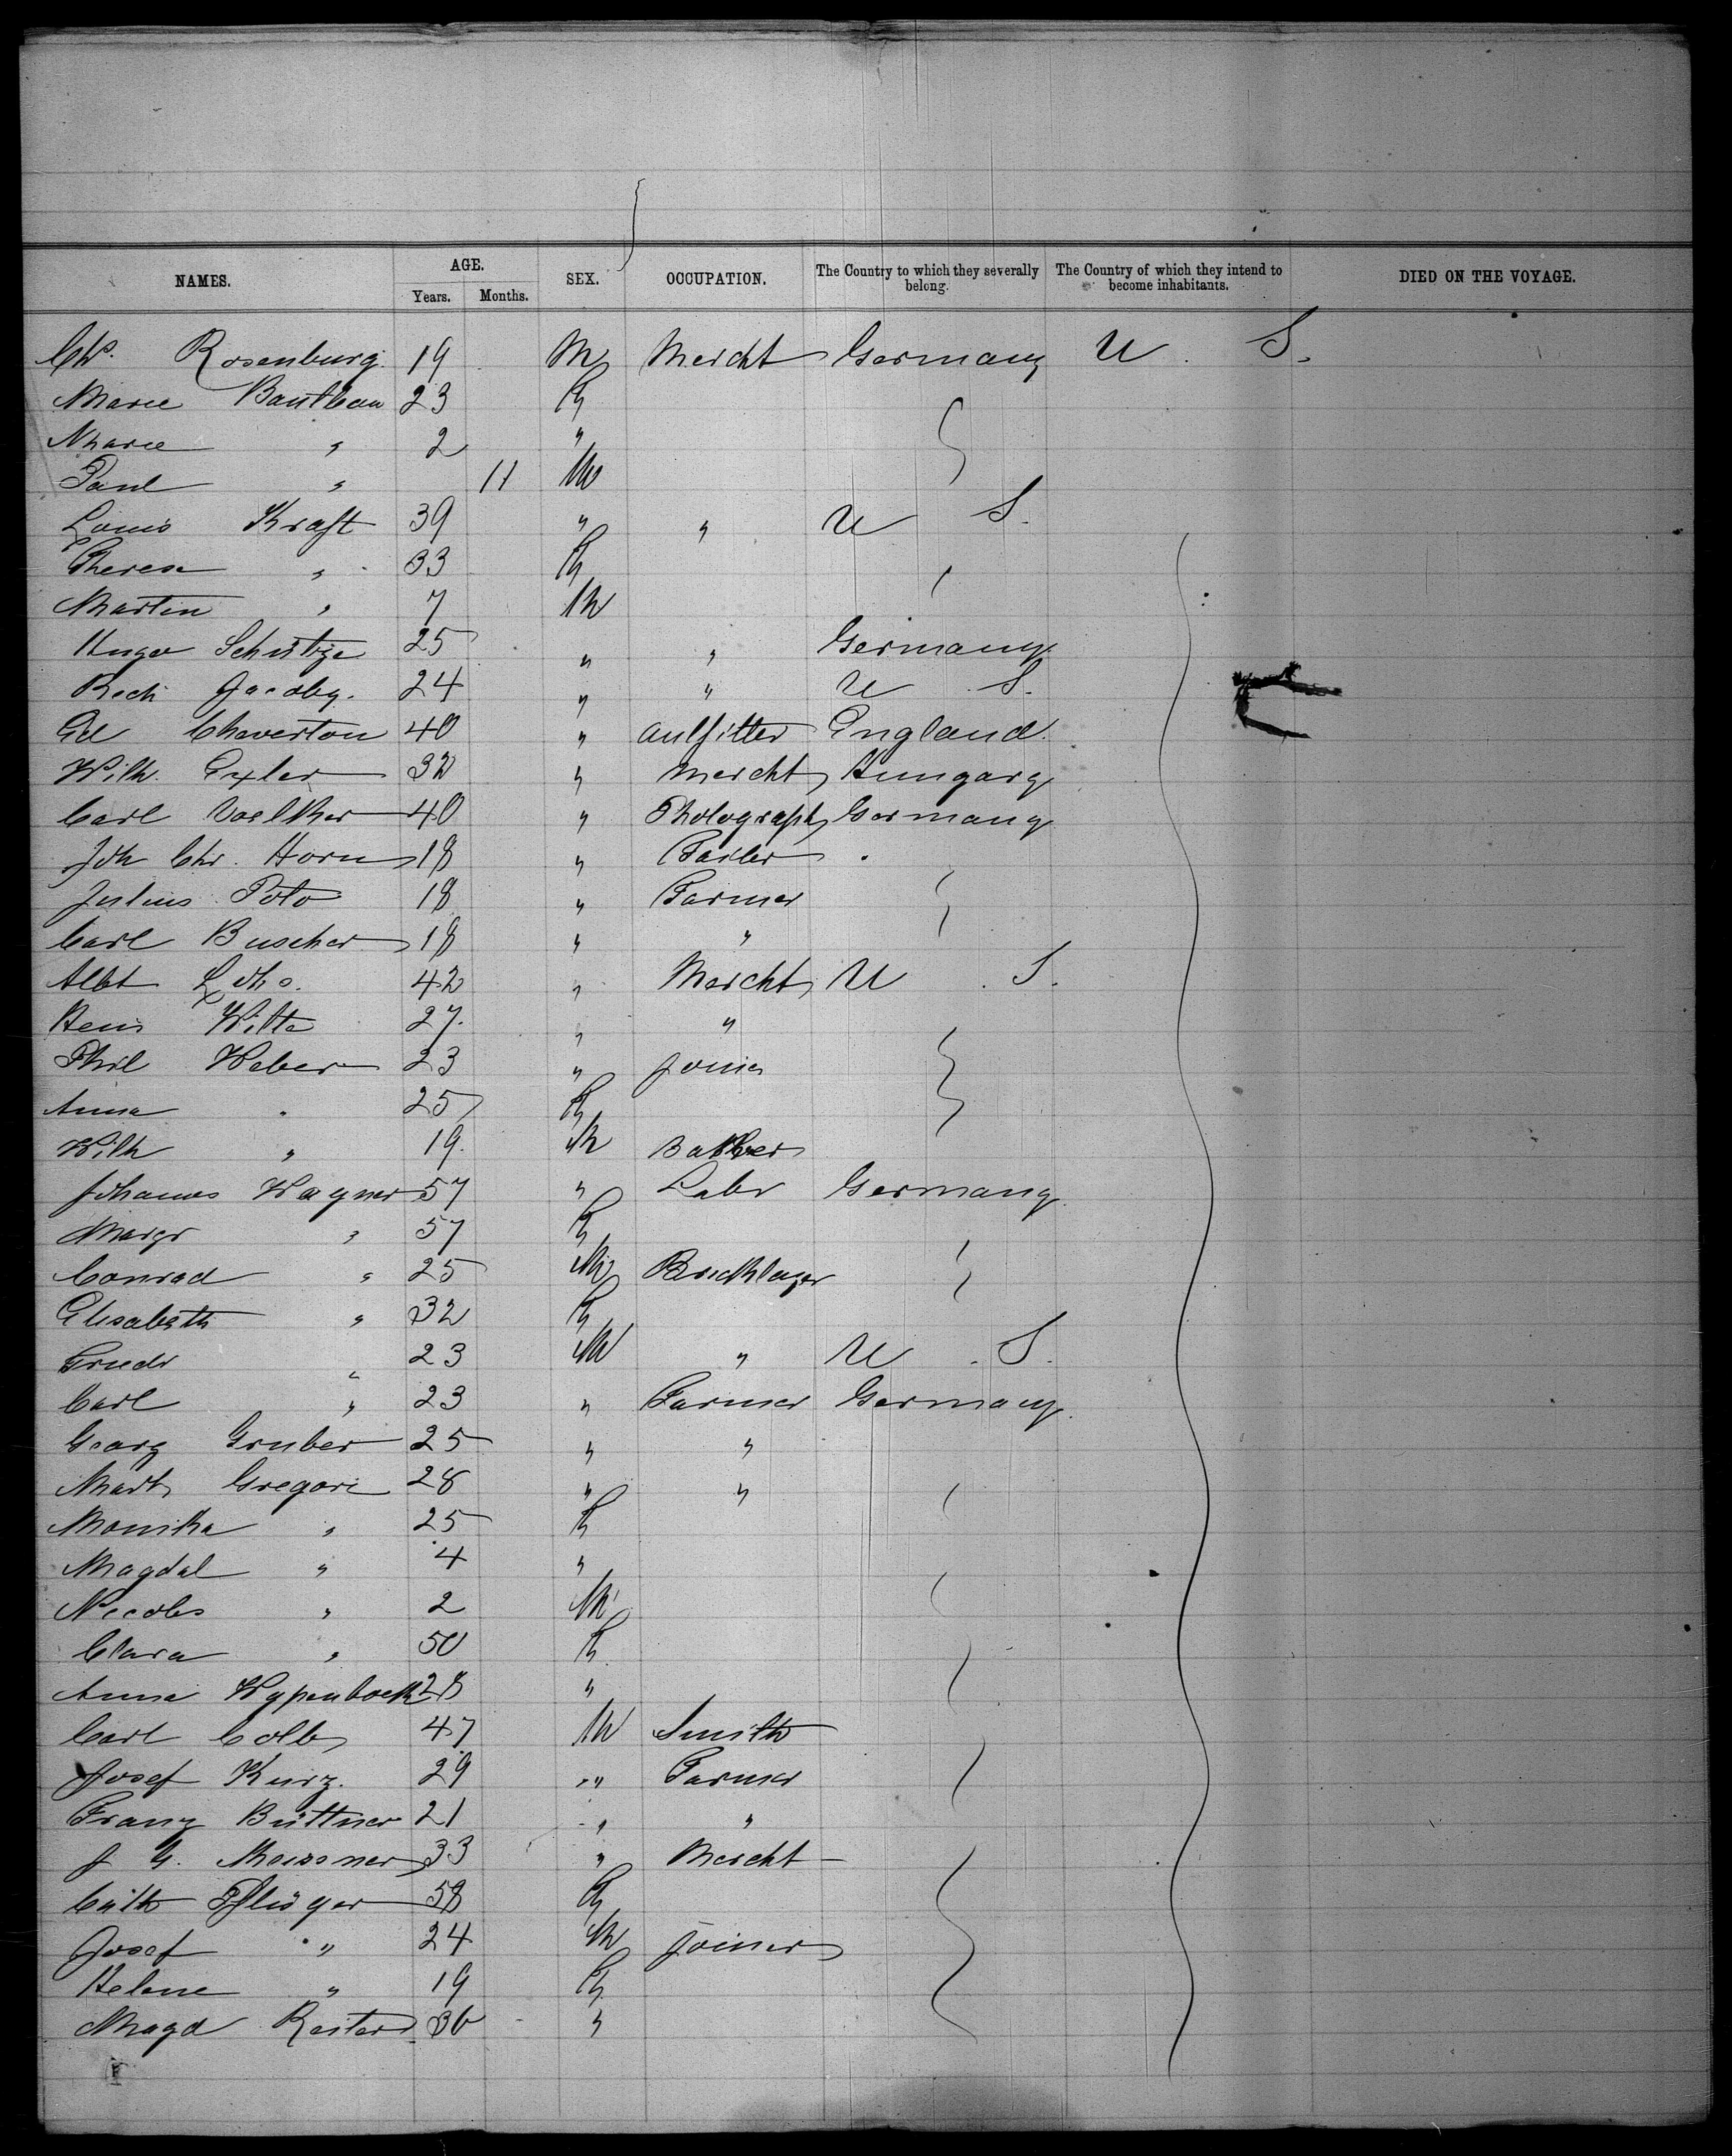 NAMES. AGE. Years. Months. SEX. OCCUPATION. The Country to which they severally belong. The Country of which they intend to become inhabitants. DIED ON THE VOYAGE.
Chs. Rosenburg. 19 M Mercht Germany U. S.
Marie 23 F
Marie " 2 "
Paul " 11 M
Louis Kraft 39 " " U S.
Theresa " 33 F
Martin " 7 M
Hugo Schütze 25 " " Germany
Rich Jacoby. 24 " " U. S.
Ed Chaverton 40 " England.
Wilh. Exler 32 " Mercht Hungary
Carl Voelker 40 " Photograph Germany
Joh Chr. Horn 18 "
Julius Poto 18 " Farmer
Carl Buscher 18 " "
Albt 42 " Mercht U. S.
Henr Witte 27. " "
Phil Weber 23 " Joiner
Anna " 25 F
Wilh " 19. M Bakker
Johannes Wagner 57 " Labr Germany
Margr " 57 F
Conrad " 25 M Bricklayer
Elisabeth " 32 F
Friedr " 23 M " U. S.
Carl " 23 " Farmer Germany.
Georg Gruber 25 " "
Mart Gregori 28 " "
Monika " 25 F
Magdal " 4 "
Nicolas " 2 M
Clara " 50 F
Anna 28 "
Carl Colb 47 M Smith
Josef Kurz. 29 " Farmer
Franz Büttner 21 " "
J G. Meissner 33 " Mercht
Cath Pflüger 58 F
Josef " 24 M Joiner
Helene " 19 F
Magd Rester 36 "